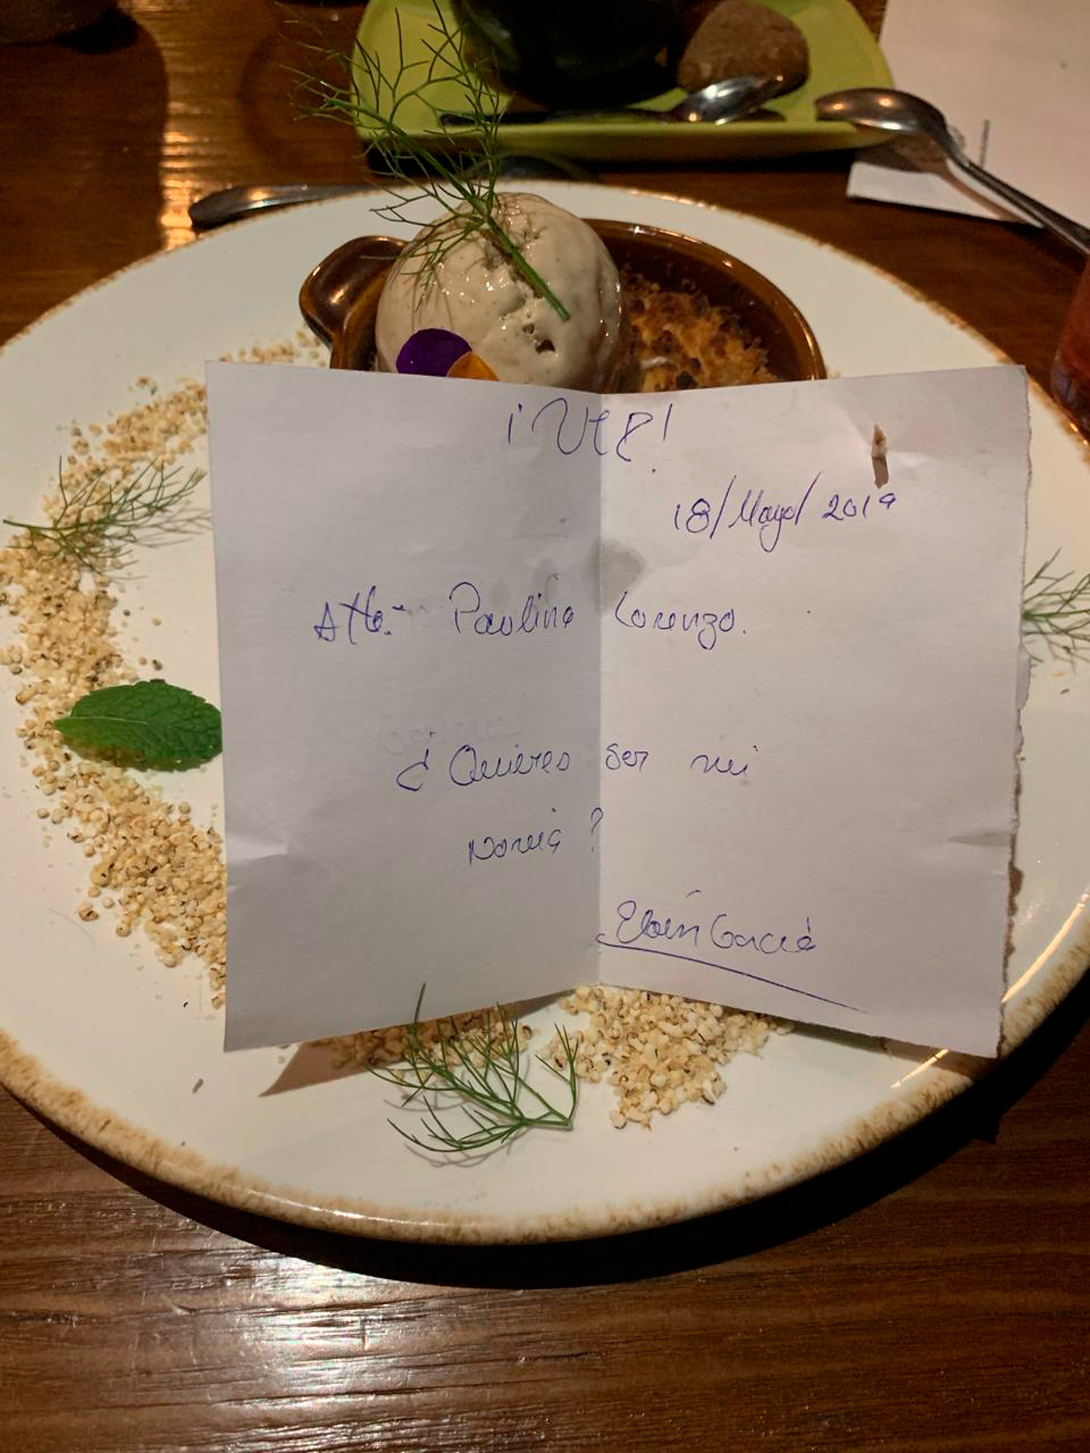 ¡VLR!
18/Mayo/2019
Att.- Paulina Lorenzo.
¿Quieres ser mi
novia?
Eloín García